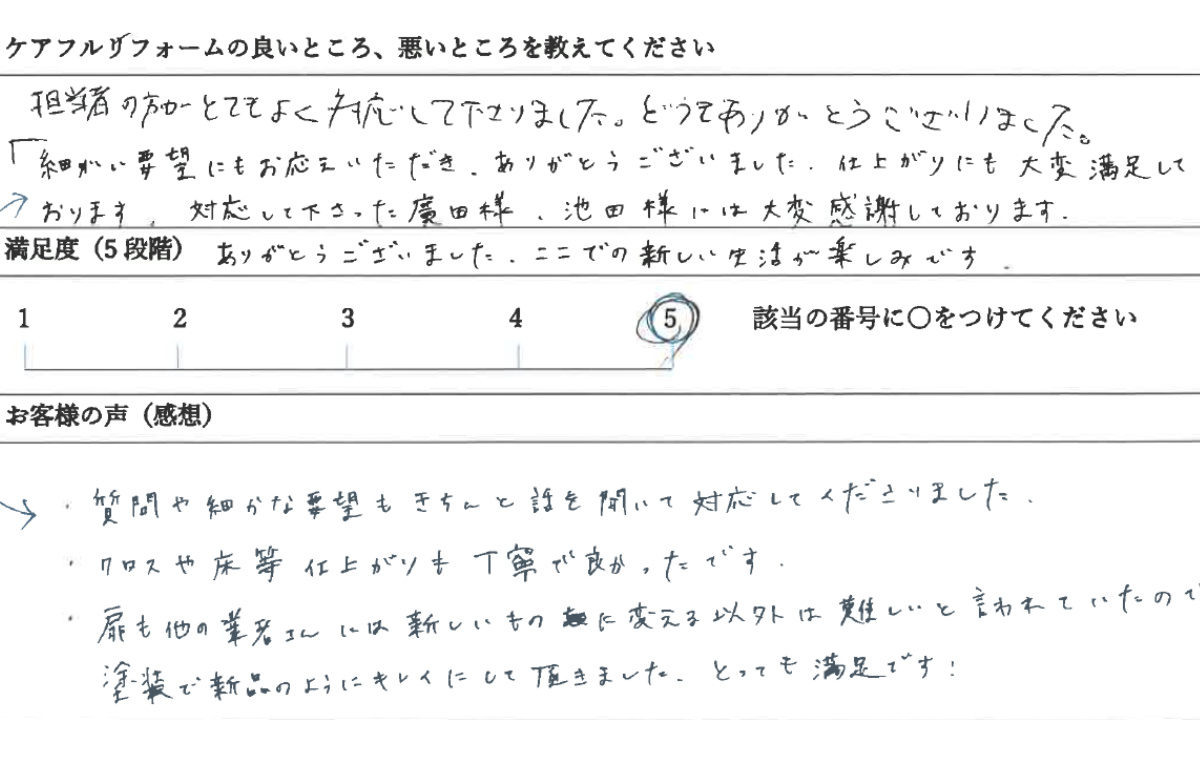 ケアフルリフォームの良いところ、悪いところを教えてください
担当者の方がとてもよく対応して下さりました。どうもありがとうございました。
「細かい要望にもお応えいただき、ありがとうございました。仕上がりにも大変満足して
おります。対応して下さった廣田様、池田様には大変感謝しております。
満足度（5段階） ありがとうございました。ここでの新しい生活が楽しみです。
1 2 3 4 5 該当の番号に〇をつけてください
お客様の声（感想）
・質問や細かな要望もきちんと話を聞いて対応してくださりました。
・クロスや床等仕上がりも丁寧で良かったです。
・扉も他の業者さんには新しいものに変える以外は難しいと言われていたので
塗装で新品のようにキレイにして頂きました。とっても満足です！